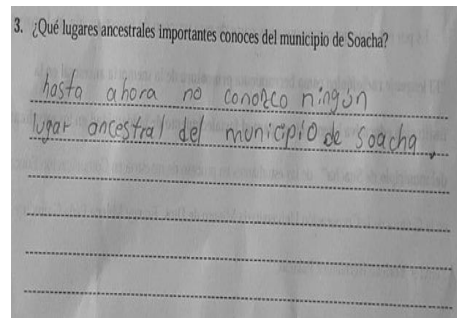 3. ¿Qué lugares ancestrales importantes conoces del municipio de Soacha?
hasta ahora no conozco ningún
lugar ancestral del municipio de Soacha,